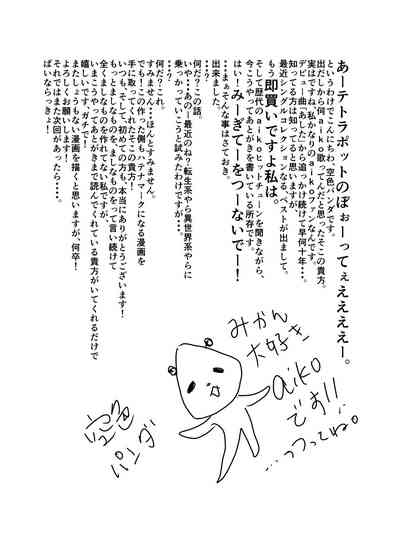 あーテトラポットのぼぉーってぇええええー。
というわけでこんにちわ、空色パンダです。
出だしから何aiko歌ってんだと思ったそこの貴方、
実はですね、私かなりのaikoファンなんです。
デビュー曲「あした」から追っかけ続けて早何十年・・・。
知ってる方は知ってると思いますが、
最近シングルコレクションなる、ベストが出まして。
もう即買いですよ私は。
そして歴代のaikoヒットチューンを聞きながら、
今こうやってあとがきを書いている所存です。
はい！みーぎてーをつーないでー！
・・・まぁそんな事はさておき、
出来ました。
・・・？
・・・？？
何だ？この話。
いや・・・あのー最近のね？転生系やら異世界系やらに
乗っかっていこうと試みたわけですが、
・・・？
何だ？これ。
すみません・・・ほんとすみません。
でもこの作った側も？マークになる漫画を
手に取ってくれたそこの貴方！
いつも、そして、初めての方も、本当にありがとうございます！
もっとましなものを、ましなものをって言い続けて
全くましなものを作れてない私ですが、
いまこうやってあとがきまで読んでくれている貴方がいてくれるだけで
嬉しいです。ガチで！
またしょうもない漫画を描くと思いますが、何卒！
よろしくお願いします！
それではまた次回があったら・・・。
ばいならっきょ！
みかん
大好き
aiko
です!!
…つってね。
空色
パンダ